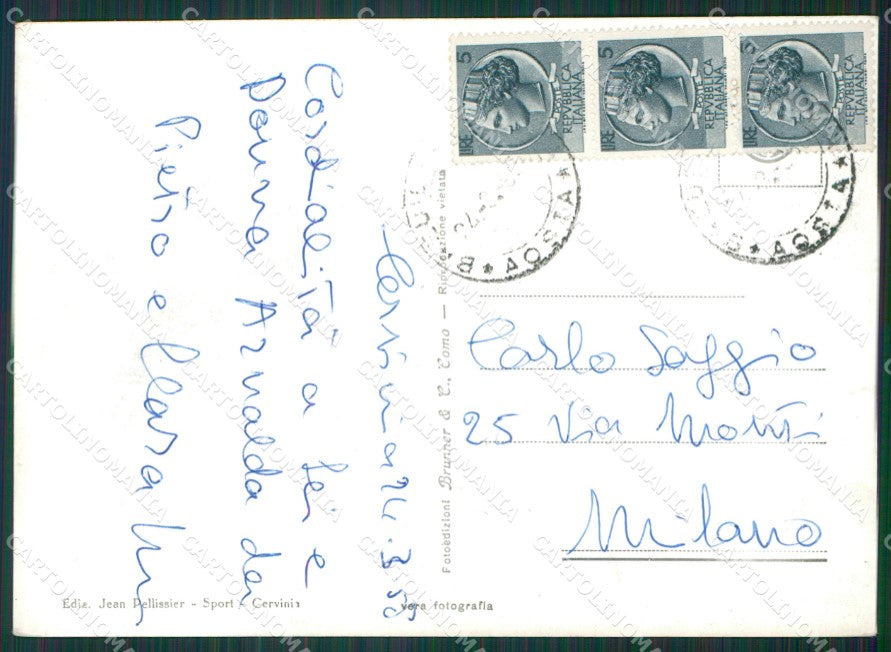 Cervinia 24.3.55
Cordialità a Lei e
Donna Arnalda da
Pietro e Clara
Ediz. Jean Pellissier - Sport - Cervinia
vera fotografia
Fotoedizioni Brunner & C., Como — Riproduzione vietata
LIRE 5 POSTE REPVBBLICA ITALIANA
LIRE 5 POSTE REPVBBLICA ITALIANA
LIRE 5 POSTE REPVBBLICA ITALIANA
★ AOSTA ★
★ AOSTA ★
Carlo Saggio
25 Via Monti
Milano
CARTOLINOMANIA